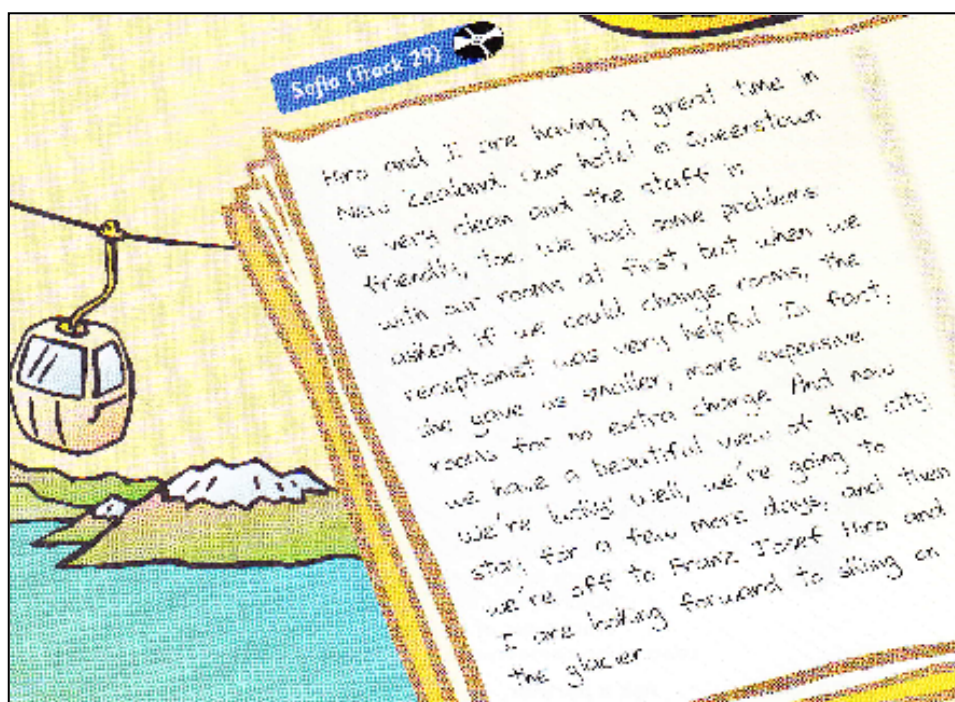 Sofia (Track 29)
Hiro and I are having a great time in
New Zealand. Our hotel in Queenstown
is very clean and the staff is
friendly, too. We had some problems
with our rooms at first, but when we
asked if we could change rooms, the
receptionist was very helpful. In fact,
she gave us smaller, more expensive
rooms for no extra charge. And now
we have a beautiful view of the city.
We're lucky! Well, we're going to
stay for a few more days, and then
we're off to Franz Josef. Hiro and
I are looking forward to skiing on
the glacier.